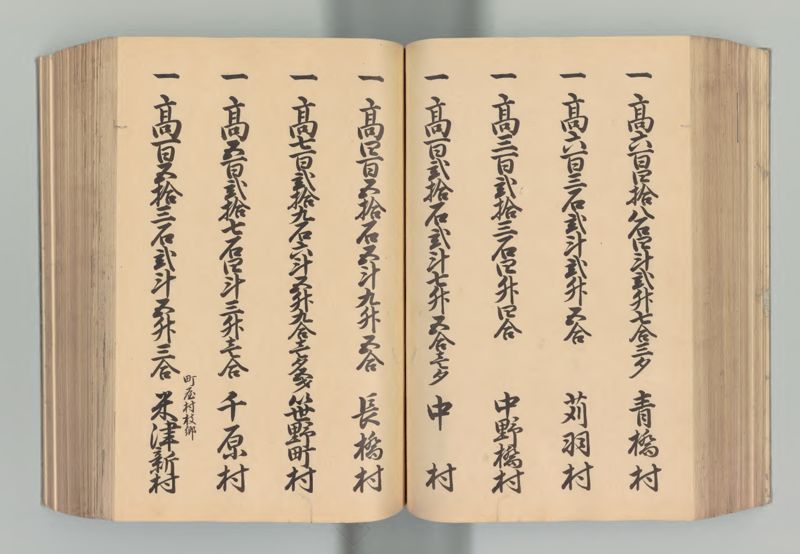 一高六百四拾八石四斗弐升七合三夕 青橋村
一高六百三石弐斗弐升五合 苅羽村
一高三百弐拾三石四升四合 中野橋村
一高百弐拾石弐斗七升五合壱夕 中村
一高四百五拾石五斗九升五合 長橋村
一高七百弐拾九石六斗五升九合壱夕 笹野町村
一高五百弐拾七石四斗三升壱合 千原村
町屋村枝郷
一高百五拾三石弐斗五升三合 米津新村